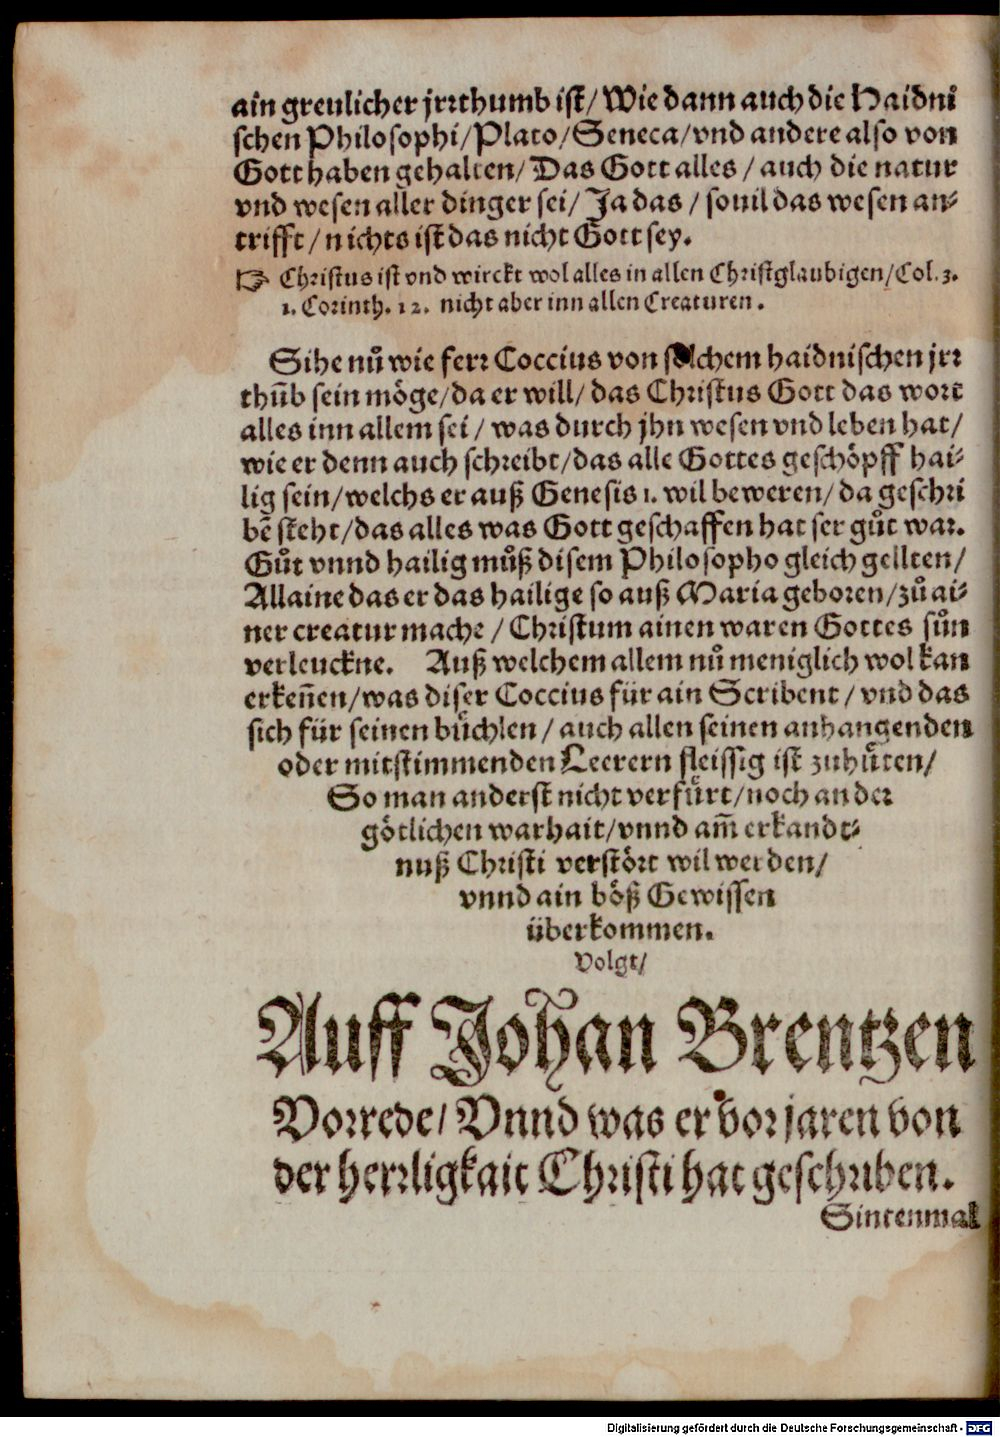 ain greulicher jrrthumb ist/ Wie dann auch die Haidni
schen Philosophi/Plato/Seneca/vnd andere also von
Gott haben gehalten/ Das Gott alles / auch die natur
vnd wesen aller dinger sei/ Ja das / souil das wesen an⸗
trifft / nichts ist das nicht Gott sey.
☞ Christus ist vnd wirckt wol alles in allen Christglaubigen/Col. 3.
1. Corinth. 12. nicht aber inn allen Creaturen.
Sihe nuͦ wie ferr Coccius von solchem haidnischen jrr
thūb sein möge/da er will/ das Christus Gott das wort
alles inn allem sei / was durch jhn wesen vnd leben hat/
wie er denn auch schreibt/das alle Gottes geschöpff hai⸗
lig sein/welchs er auß Genesis 1. wil beweren/ da geschri
bē steht/das alles was Gott geschaffen hat ser guͦt war.
Guͦt vnnd hailig muͦß disem Philosopho gleich gellten/
Allaine das er das hailige so auß Maria geboren/zuͦ ai⸗
ner creatur mache / Christum ainen waren Gottes suͦn
verleuckne. Auß welchem allem nuͦ meniglich wol kan
erkeñen/was diser Coccius für ain Scribent / vnd das
sich für seinen büchlen / auch allen seinen anhangenden
oder mitstimmenden Leerern fleissig ist zuhüten/
So man anderst nicht verfürt/noch an der
götlichen warhait/vnnd am̄ erkandt⸗
nuß Christi verstört wil werden/
vnnd ain böß Gewissen
überkommen.
Volgt/
Auff Johan Brentzen
Vorrede/ Vnnd was er vor jaren von
der herrligkait Christi hat geschriben.
Sintenmal
Digitalisierung gefördert durch die Deutsche Forschungsgemeinschaft - DFG